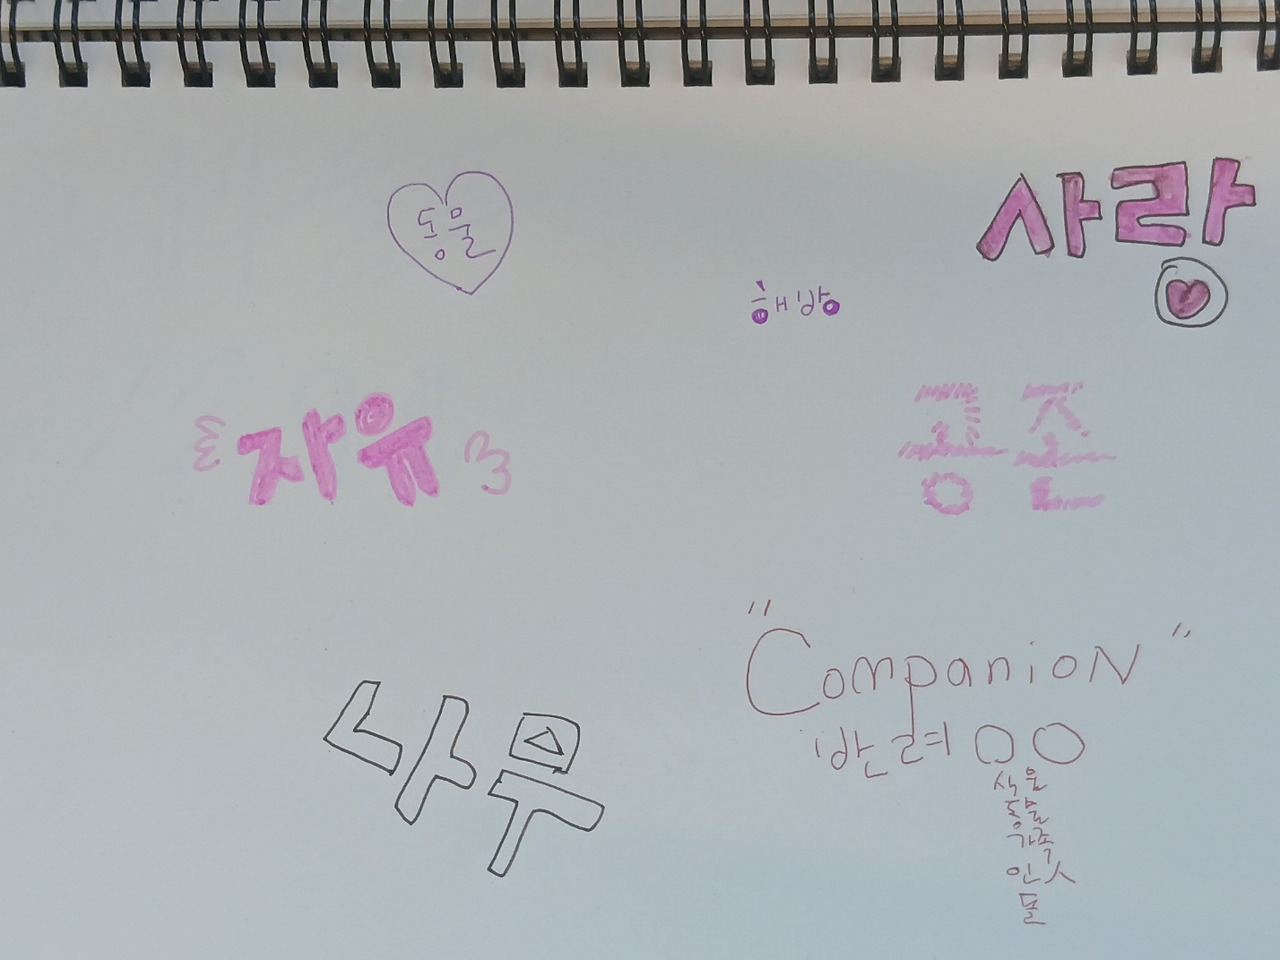 동물
사랑
해방
자유
공존
나무
"Companion"
반려○○
식물
동물
가족
인
물